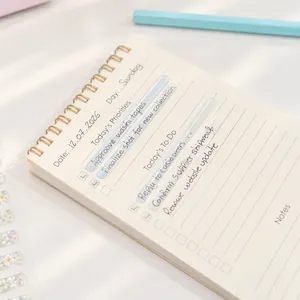 Date: 12.07.2026
Day: Sunday
Today's Priorities
Approve washi tapes
Finalize shot for new collection
Today's To Do
Reply to customers
Confirm supplier shipment
Review website update
Notes